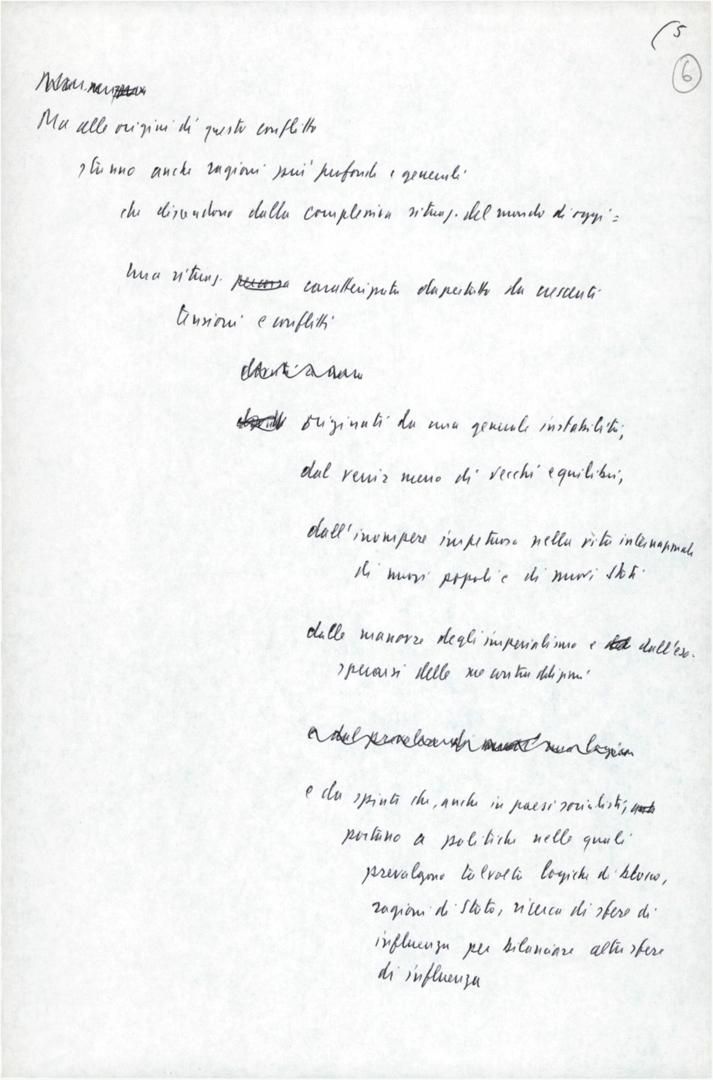 5
6
Ma alle origini di questo conflitto
stanno anche ragioni più profonde e generali
che discendono dalla complessiva situaz. del mondo di oggi:
una situaz. caratterizzata dapertutto da crescenti
tensioni e conflitti
originati da una generale instabilità,
dal venir meno di vecchi equilibri,
dall'irrompere impetuoso nella vita internazionale
di nuovi popoli e di nuovi Stati
dalle manovre degli imperialismo e dall'esa-
sperarsi delle sue contraddizioni
e da spinte che, anche in paesi socialisti,
portano a politiche nelle quali
prevalgono talvolta logiche di blocco,
ragioni di Stato, ricerca di sfere di
influenza per bilanciare altre sfere
di influenza